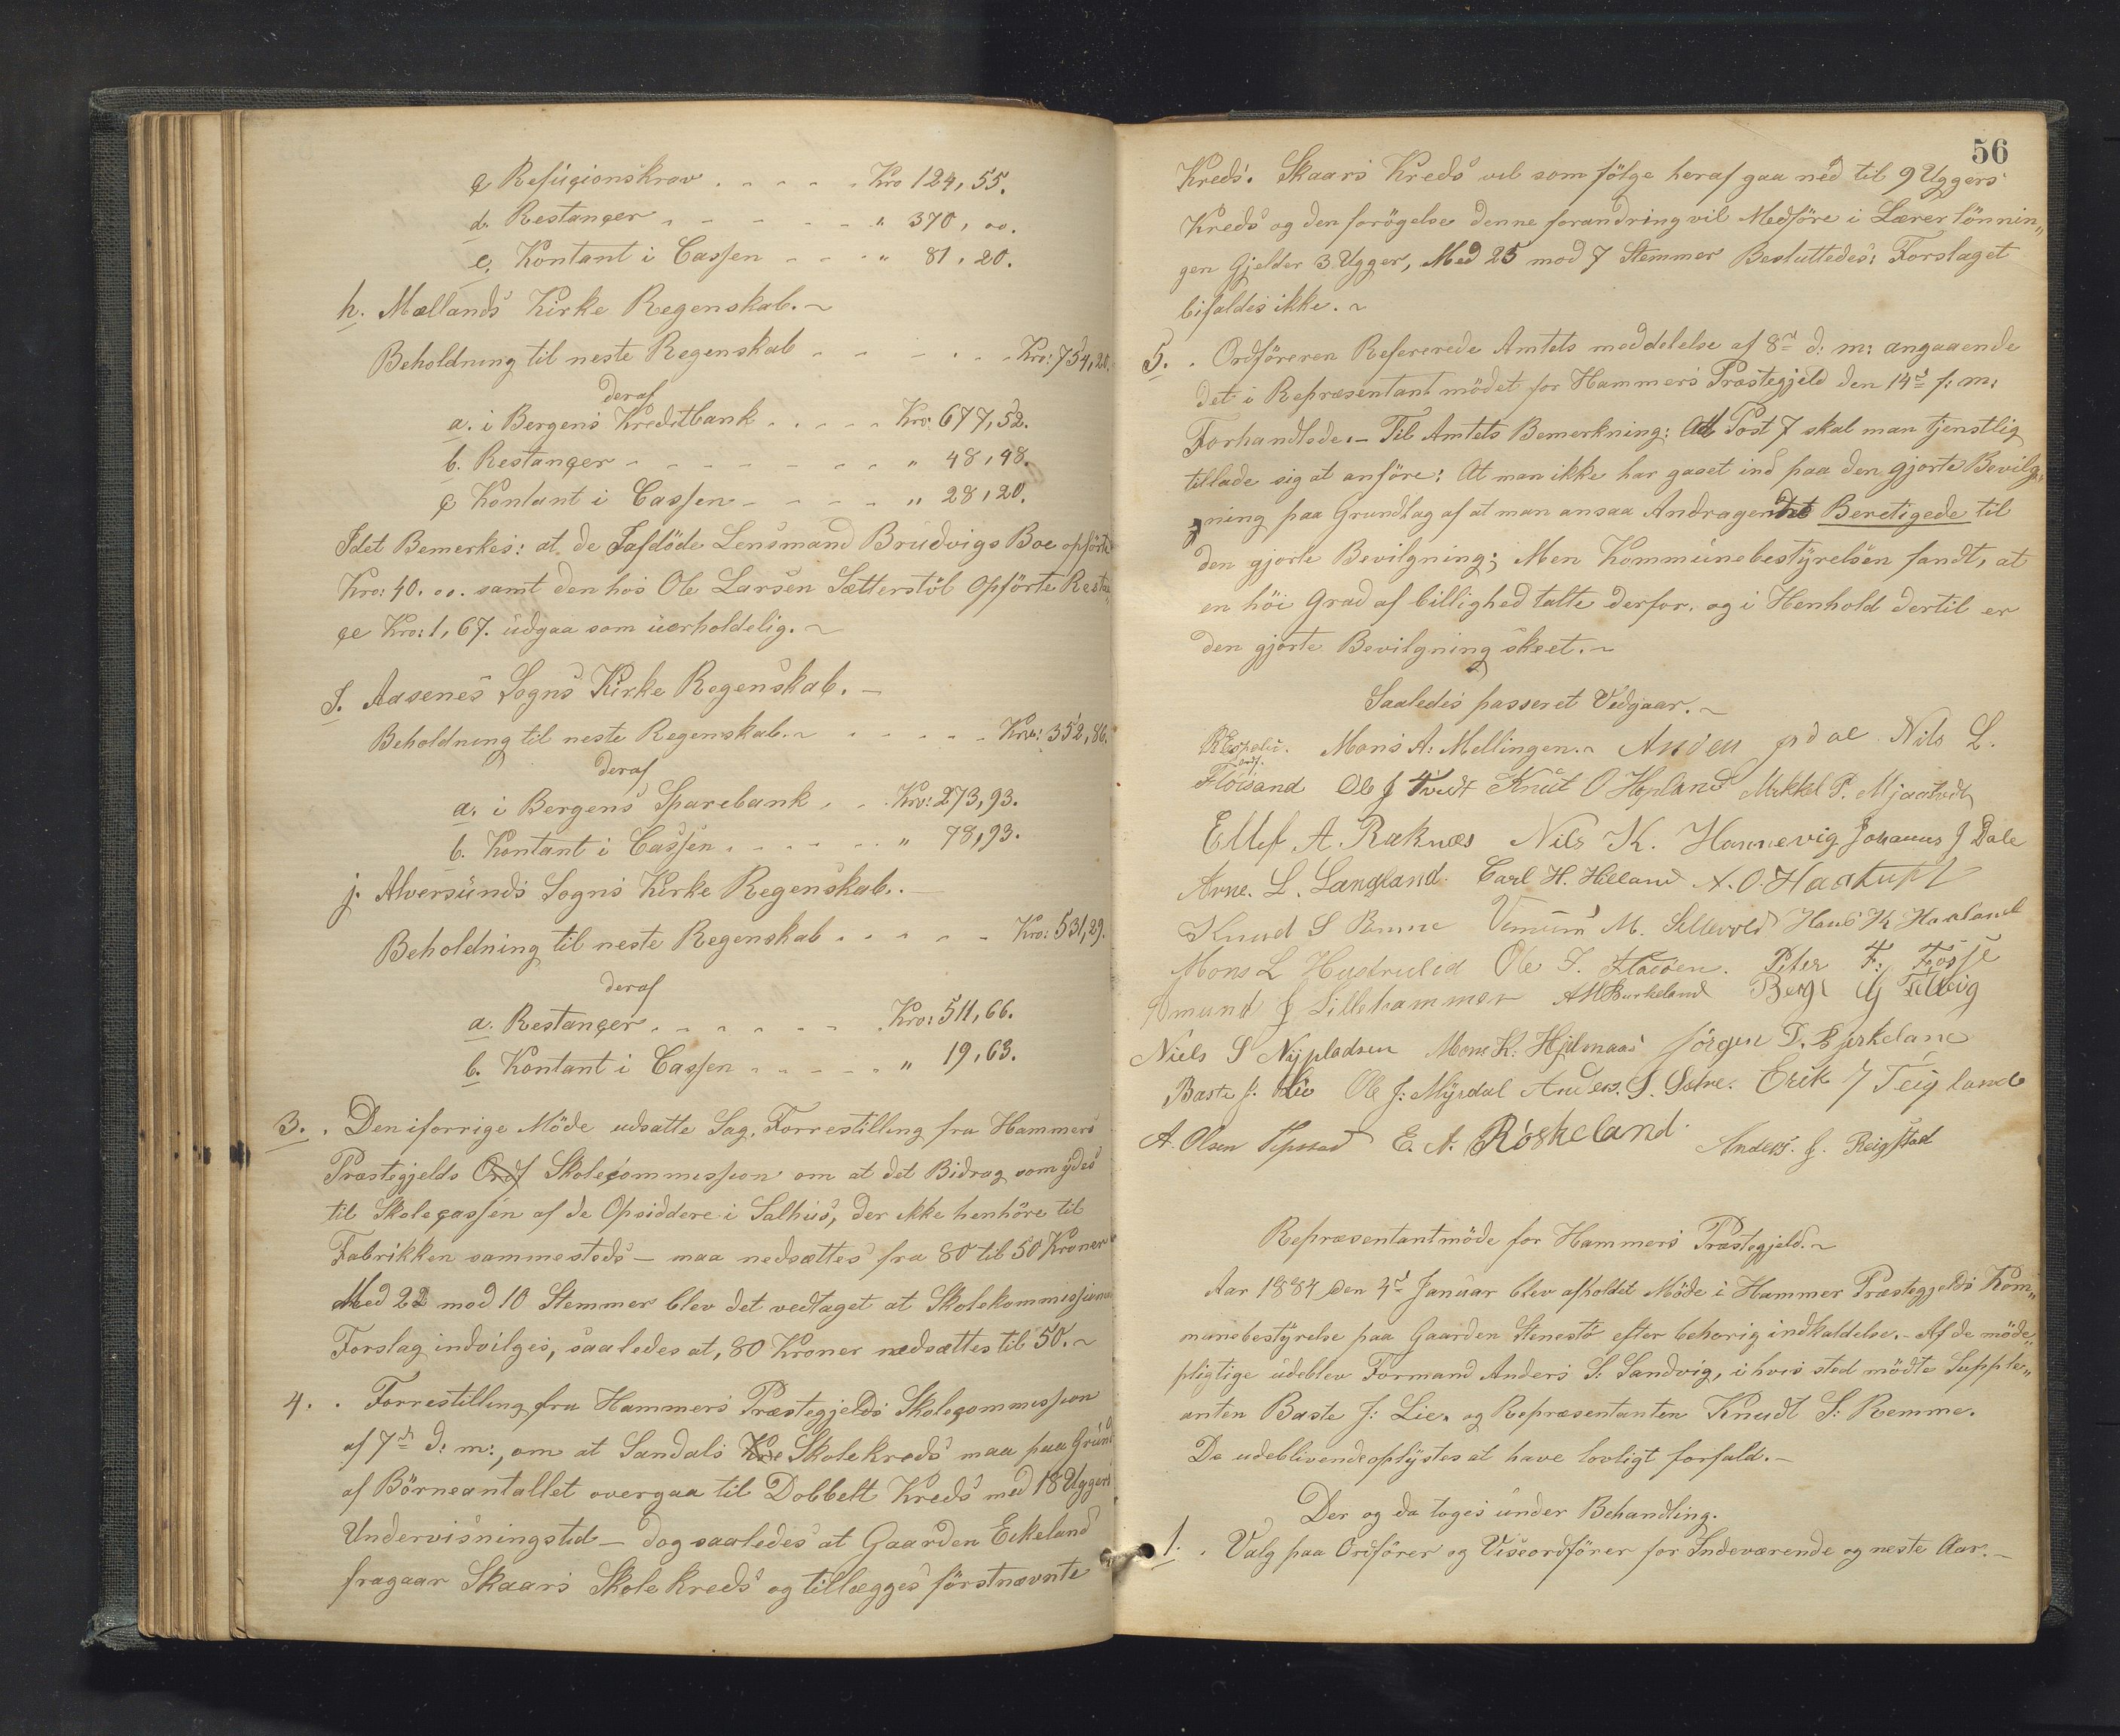 c Refusionskrav . . . . . Kro 124,55.
d. Restancer . . . . . " 370, oo.
e. Kontant i Cassen . . . " 81,20.
h. Mællands Kirke Regenskab. ~
Beholdning til neste Regenskab . . . . . . Kro: 754,20.
deraf
a. i Bergens Kreditbank . . . . . Kro: 677,52.
b. Restancer . . . . . . . " 48,48.
c Kontant i Cassen . . . . " 28,20.
Idet Bemerkes: at de I afdöde Lensmand Brudvigs Boe opförte
Kro: 40. oo. samt den hos Ole Larsen Sætterstöl Opförte Restan„
ce Kro: 1,67. udgaa som uerholdelig. ~
I. Aasenes Sogns Kirke Regenskab. —
Beholdning til neste Regenskab. ~ . . . . . Kro: 352,86.
deraf
a. i Bergens Sparebank . . . Kro: 273,93.
b. Kontant i Cassen . . . . . . " 78,93.
j. Alversunds Sogns Kirke Regenskab. —
Beholdning til neste Regenskab . . . . . Kro: 531,29.
deraf
a. Restancer . . . . . . . Kro: 511,66.
b. Kontant i Cassen . . . . . " 19,63.
3. . Den iforrige Möde udsatte Sag, Forrestilling fra Hammers
Præstegjelds Skolecommission om at det Bidrag som ydes
til Skolecassen af de Opsiddere i Salhus, der ikke henhöre til
Fabrikken sammesteds — maa nedsættes fra 80 til 50 Kroner
Med 22 mod 10 Stemmer blev det vedtaget at Skolekommissionens
Forslag indvilges, saaledes at, 80 Kroner nedsættes til 50. ~
4. . Forrestilling fra Hammers Præstegjelds Skolecommission
af 7de d: m:, om at Sandals Skolekreds maa paa Grund
af Börneantallet overgaa til Dobbelt Kreds med 18 Uggers
Undervisningstid — dog saaledes at Gaarden Eikeland
fragaar Skaars Skolekreds og tillægges förstnævnte
56
Kreds. Skaars Kreds vil som fölge heraf gaa ned til 9 Uggers
Kreds og den forögelse denne forandring vil Medföre i Lærerlönnin„
gen Gjelder 3 Ugger, Med 25 mod 7 Stemmer Besluttedes: Forslaget
bifaldes ikke. ~
5. . Ordföreren Refererede Amtets meddelelse af 8de d: m: angaaende
det i Repræsentantmödet for Hammers Præstegjeld den 14de f: m:
Forhandlede. — Til Amtets Bemerkning: Ad Post 7 skal man tjenstlig
tillade sig at anföre: At man ikke har gaaet ind paa den gjorte Bevilg„
ning paa Grundlag af at man ansaa Andragendet Beretigede til
den gjorte Bevilgning; Men Kommunebestyrelsen fandt, at
en höi Grad af billighed talte derfor, og i Henhold dertil er
den gjorte Bevilgning skeet. ~
Saaledes passeret Vedgaar. ~
Mons A: Mellingen. ~ Nils L.
Flöisand Ole J Tvedt Knut O Hopland Mikkel P. Mjaatvedt
Ellef A. Raknæs Nils K. Hannevig Johannes J Dale
Arne. L. Langland. Carl H. Helland N. O. Haatuft
Knud S Remme M. Sellevold Hans K Haaland
Mons L Hustrulid Ole J. Flatöen. Peter F: Fosse
Amund J Lillehammer A M Burkeland
Niels S Nypladsen Mons K. Hjelmaas Jörgen T. Birkeland
Baste J. Lie Ole J: Myrdal Anders. S. Sætre. Erik J Teigland
A. Olsen E. A. Röskeland. Anders. J. Reigstad
Repræsentantmöde for Hammers Præstegjeld. ~
Aar 1884 den 4de Januar blev afholdet Möde i Hammer Præstegjelds Kom„
munsbestyrelse paa Gaarden Stenestö efter behörig indkaldelse. — Af de möde„
pligtige udeblev Formand Anders S. Sandvig, i hvis sted mödte Supple„
anten Baste J: Lie, og Repræsentanten Knudt S: Remme.
De udeblivende oplystes at have lovligt forfald. —
Der og da toges under Behandling.
1. . Valg paa Ordförer og Viseordförer for Indeværende og neste Aar. —